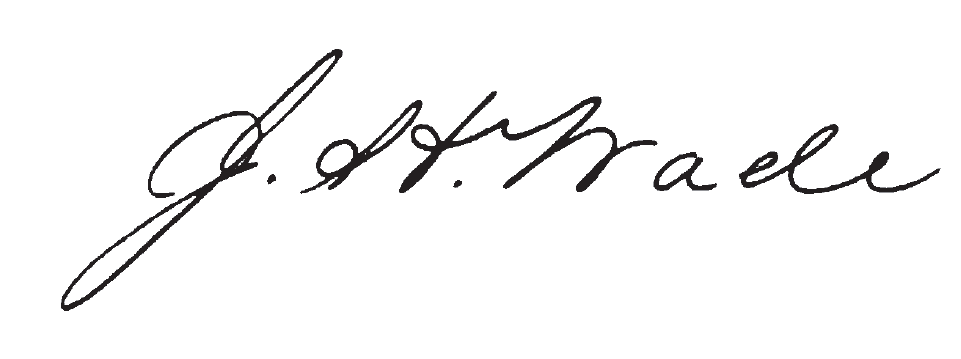 J. H. Wade